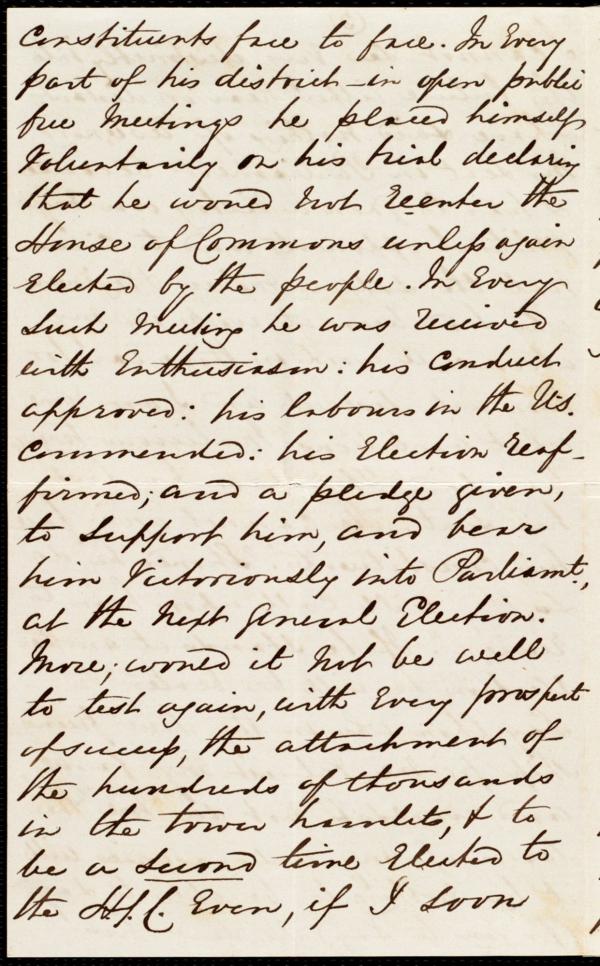 constituents face to face. In Every
part of his district - in open public
free Meetings he placed himself
Voluntarily on his trial declaring
that he would not reenter the
House of Commons unless again
Elected by the people. In Every
Such Meeting he was received
with Enthusiasm: his Conduct
approved: his labours in the U.S.
Commended: his Election reaf-
firmed; and a pledge given,
to support him, and bear
him Victoriously into Parliamt,
at the Next General Election.
More; would it not be well
to test again, with Every prospect
of success, the attachment of
the hundreds of thousands
in the tower hamlets, & to
be a second time Elected to
the H. of C. Even, if I soon